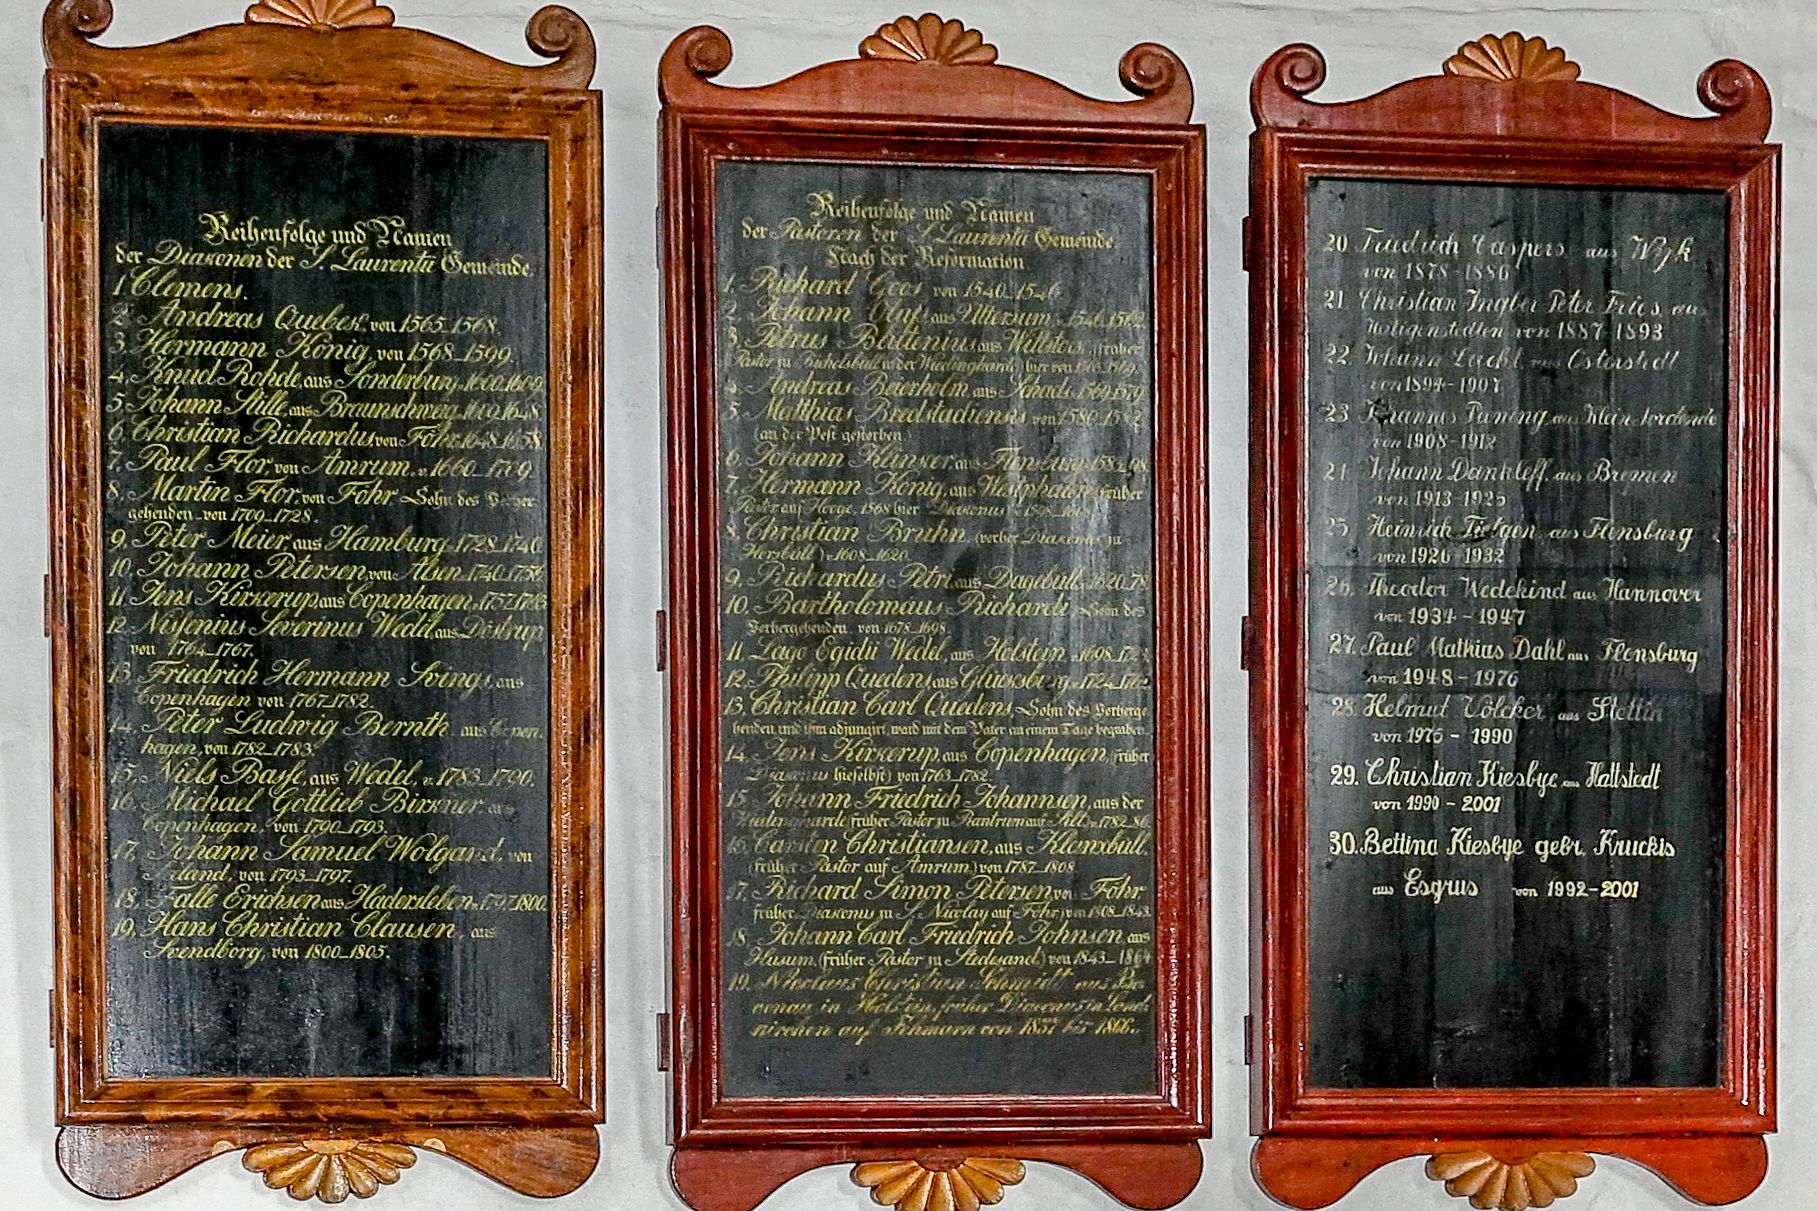 Reihenfolge und Namen
der Diakonen der S. Laurentii Gemeinde.
1 Clemens.
2. Andreas Quebek, von 1565-1568.
3. Hermann König, von 1568-1599.
4. Knud Rohde, aus Sonderburg, 1600-1609.
5. Johann Stille, aus Braunschweig, 1609-1648.
6. Christian Richardus von Föhr, 1648-1658.
7. Paul Flor, von Amrum, v. 1660-1709.
8. Martin Flor, von Föhr. Sohn des Vorher-
gehenden von 1709-1728.
9. Peter Meier aus Hamburg, 1728-1740.
10. Johann Petersen, von Alsen, 1740-1756.
11. Jens Kirkerup, aus Copenhagen, 1757-1763.
12. Nissenius Severinus Wedel, aus Döstrup,
von 1764-1767.
13. Friedrich Hermann Svings, aus
Copenhagen von 1767-1782.
14. Peter Ludwig Bernth, aus Copen-
hagen, von 1782-1783.
15. Niels Basse, aus Wedel, v. 1783-1790.
16. Michael Gottlieb Birkner, aus
Copenhagen, von 1790-1793.
17. Johann Samuel Wolgard, von
von 1793-1797.
18. Falle Erichsen aus Hadersleben v. 1797-1800.
19. Hans Christian Clausen, aus
Svendborg, von 1800-1805.
Reihenfolge und Namen
der Pastoren der S. Laurentii Gemeinde,
Nach der Reformation.
1. Richard Goos von 1540-1546.
2. Johann Oluf, aus Uttersum, 1546-1562.
3. Petrus Baltenius aus Wittstock, (früher
Pastor zu in der Wiedingharde) hier von
4. Andreas Beierholm, aus 1569-1579
5. Matthias Bredstadiensis von 1580-1582
(an der Pest gestorben.)
6. Johann Klinker, aus Flensburg, 1582-98.
7. Hermann König, aus Westphalen (früher
Pastor auf Hooge, 1568 hier Diakonus)
8. Christian Bruhn, (vorher Diakonus zu
v. 1608-1620.
9. Richardus Petri, aus Dagebüll, v. 1620-78.
10. Bartholomäus Richardi, Sohn des
Vorhergehenden, von 1678-1698.
11. Lago Egidii Wedel, aus Holstein,
12. Philipp Quedens aus Glücksburg,
13. Christian Carl Quedens, Sohn des Vorherge
henden, und ihm adjungirt, ward mit dem Vater an einem Tage begraben.
14. Jens Kirkerup, aus Copenhagen, (früher
Diakonus hieselbst) von 1763-1782.
15. Johann Friedrich Johannsen, aus der
Wiedingharde (früher Pastor zu Rantrum auf Silt) v. 1782-86.
16. Carsten Christiansen, aus Klenxbüll,
(früher Pastor auf Amrum,) von 1787-1808.
17. Richard Simon Petersen von Föhr,
früher Diakonus zu S. Nicolay auf Föhr) von 1808-1843.
18. Johann Carl Friedrich Johnsen, aus
Husum, (früher Pastor zu Stedesand,) von 1843-1864
19. Christian Schmidt aus
in Holstein, früher Diaconus in Land-
kirchen auf Fehmarn von 1837 bis 1866.
20 Friedrich Caspers, aus Wyk
von 1878-1886
21. Christian Ingber Peter Fries, aus
Heiligenstedten von 1887-1893
22. Johann aus Osterstedt
von 1894-1907
23. Johannes Reining, aus Klein
von 1908-1912
24 Johann Dankleff, aus Bremen
von 1913-1925
25 Heinrich Tietgen, aus Flensburg
von 1926-1932
26. Theodor Wedekind aus Hannover
von 1934-1947
27. Paul Mathias Dahl aus Flensburg
von 1948-1976
28. Helmut Völcker, aus Stettin
von 1976-1990
29. Christian Kiesbye aus Hattstedt
von 1990-2001
30. Bettina Kiesbye gebr. Kruckis
aus Esgrus von 1992-2001